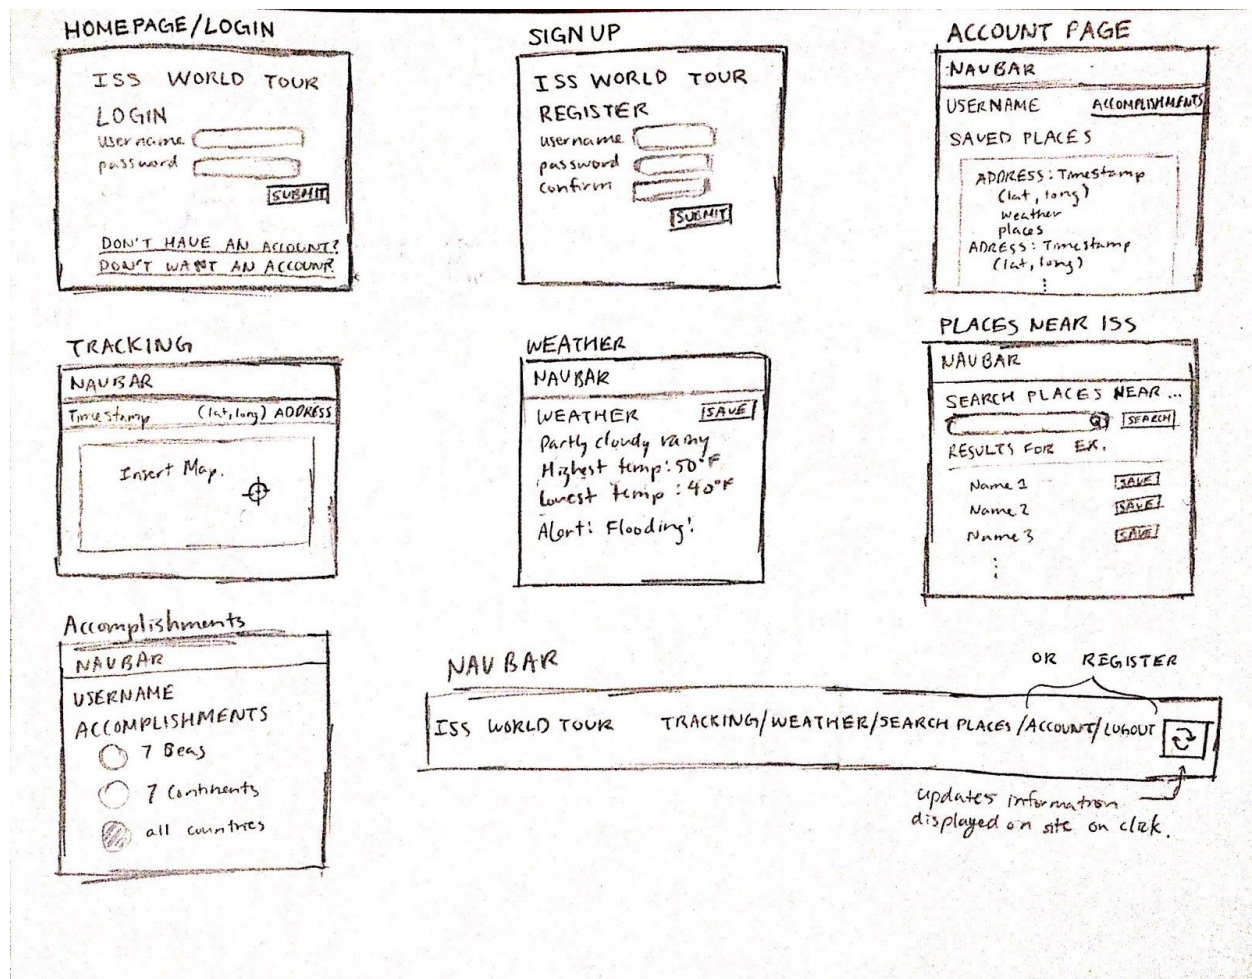 HOMEPAGE/LOGIN
ISS WORLD TOUR
LOGIN
username
password
SUBMIT
DON'T HAVE AN ACCOUNT?
DON'T WANT AN ACCOUNT?
SIGN UP
ISS WORLD TOUR
REGISTER
username
password
confirm
SUBMIT
ACCOUNT PAGE
NAVBAR
USERNAME ACCOMPLISHMENTS
SAVED PLACES
ADDRESS: Timestamp
(lat, long)
weather
places
ADRESS: Timestamp
(lat, long)
TRACKING
NAVBAR
Timestamp (lat, long) ADDRESS
Insert Map.
WEATHER
NAVBAR
WEATHER SAVE
Partly cloudy rainy
Highest temp: 50°F
Lowest temp: 40°F
Alert! Flooding!
PLACES NEAR ISS
NAVBAR
SEARCH PLACES NEAR...
SEARCH
RESULTS FOR EX.
Name 1 SAVE
Name 2 SAVE
Name 3 SAVE
Accomplishments
NAVBAR
USERNAME
ACCOMPLISHMENTS
7 Seas
7 Continents
all countries
NAVBAR
OR REGISTER
ISS WORLD TOUR TRACKING/WEATHER/SEARCH PLACES/ACCOUNT/LOGOUT
updates information
displayed on site on click.